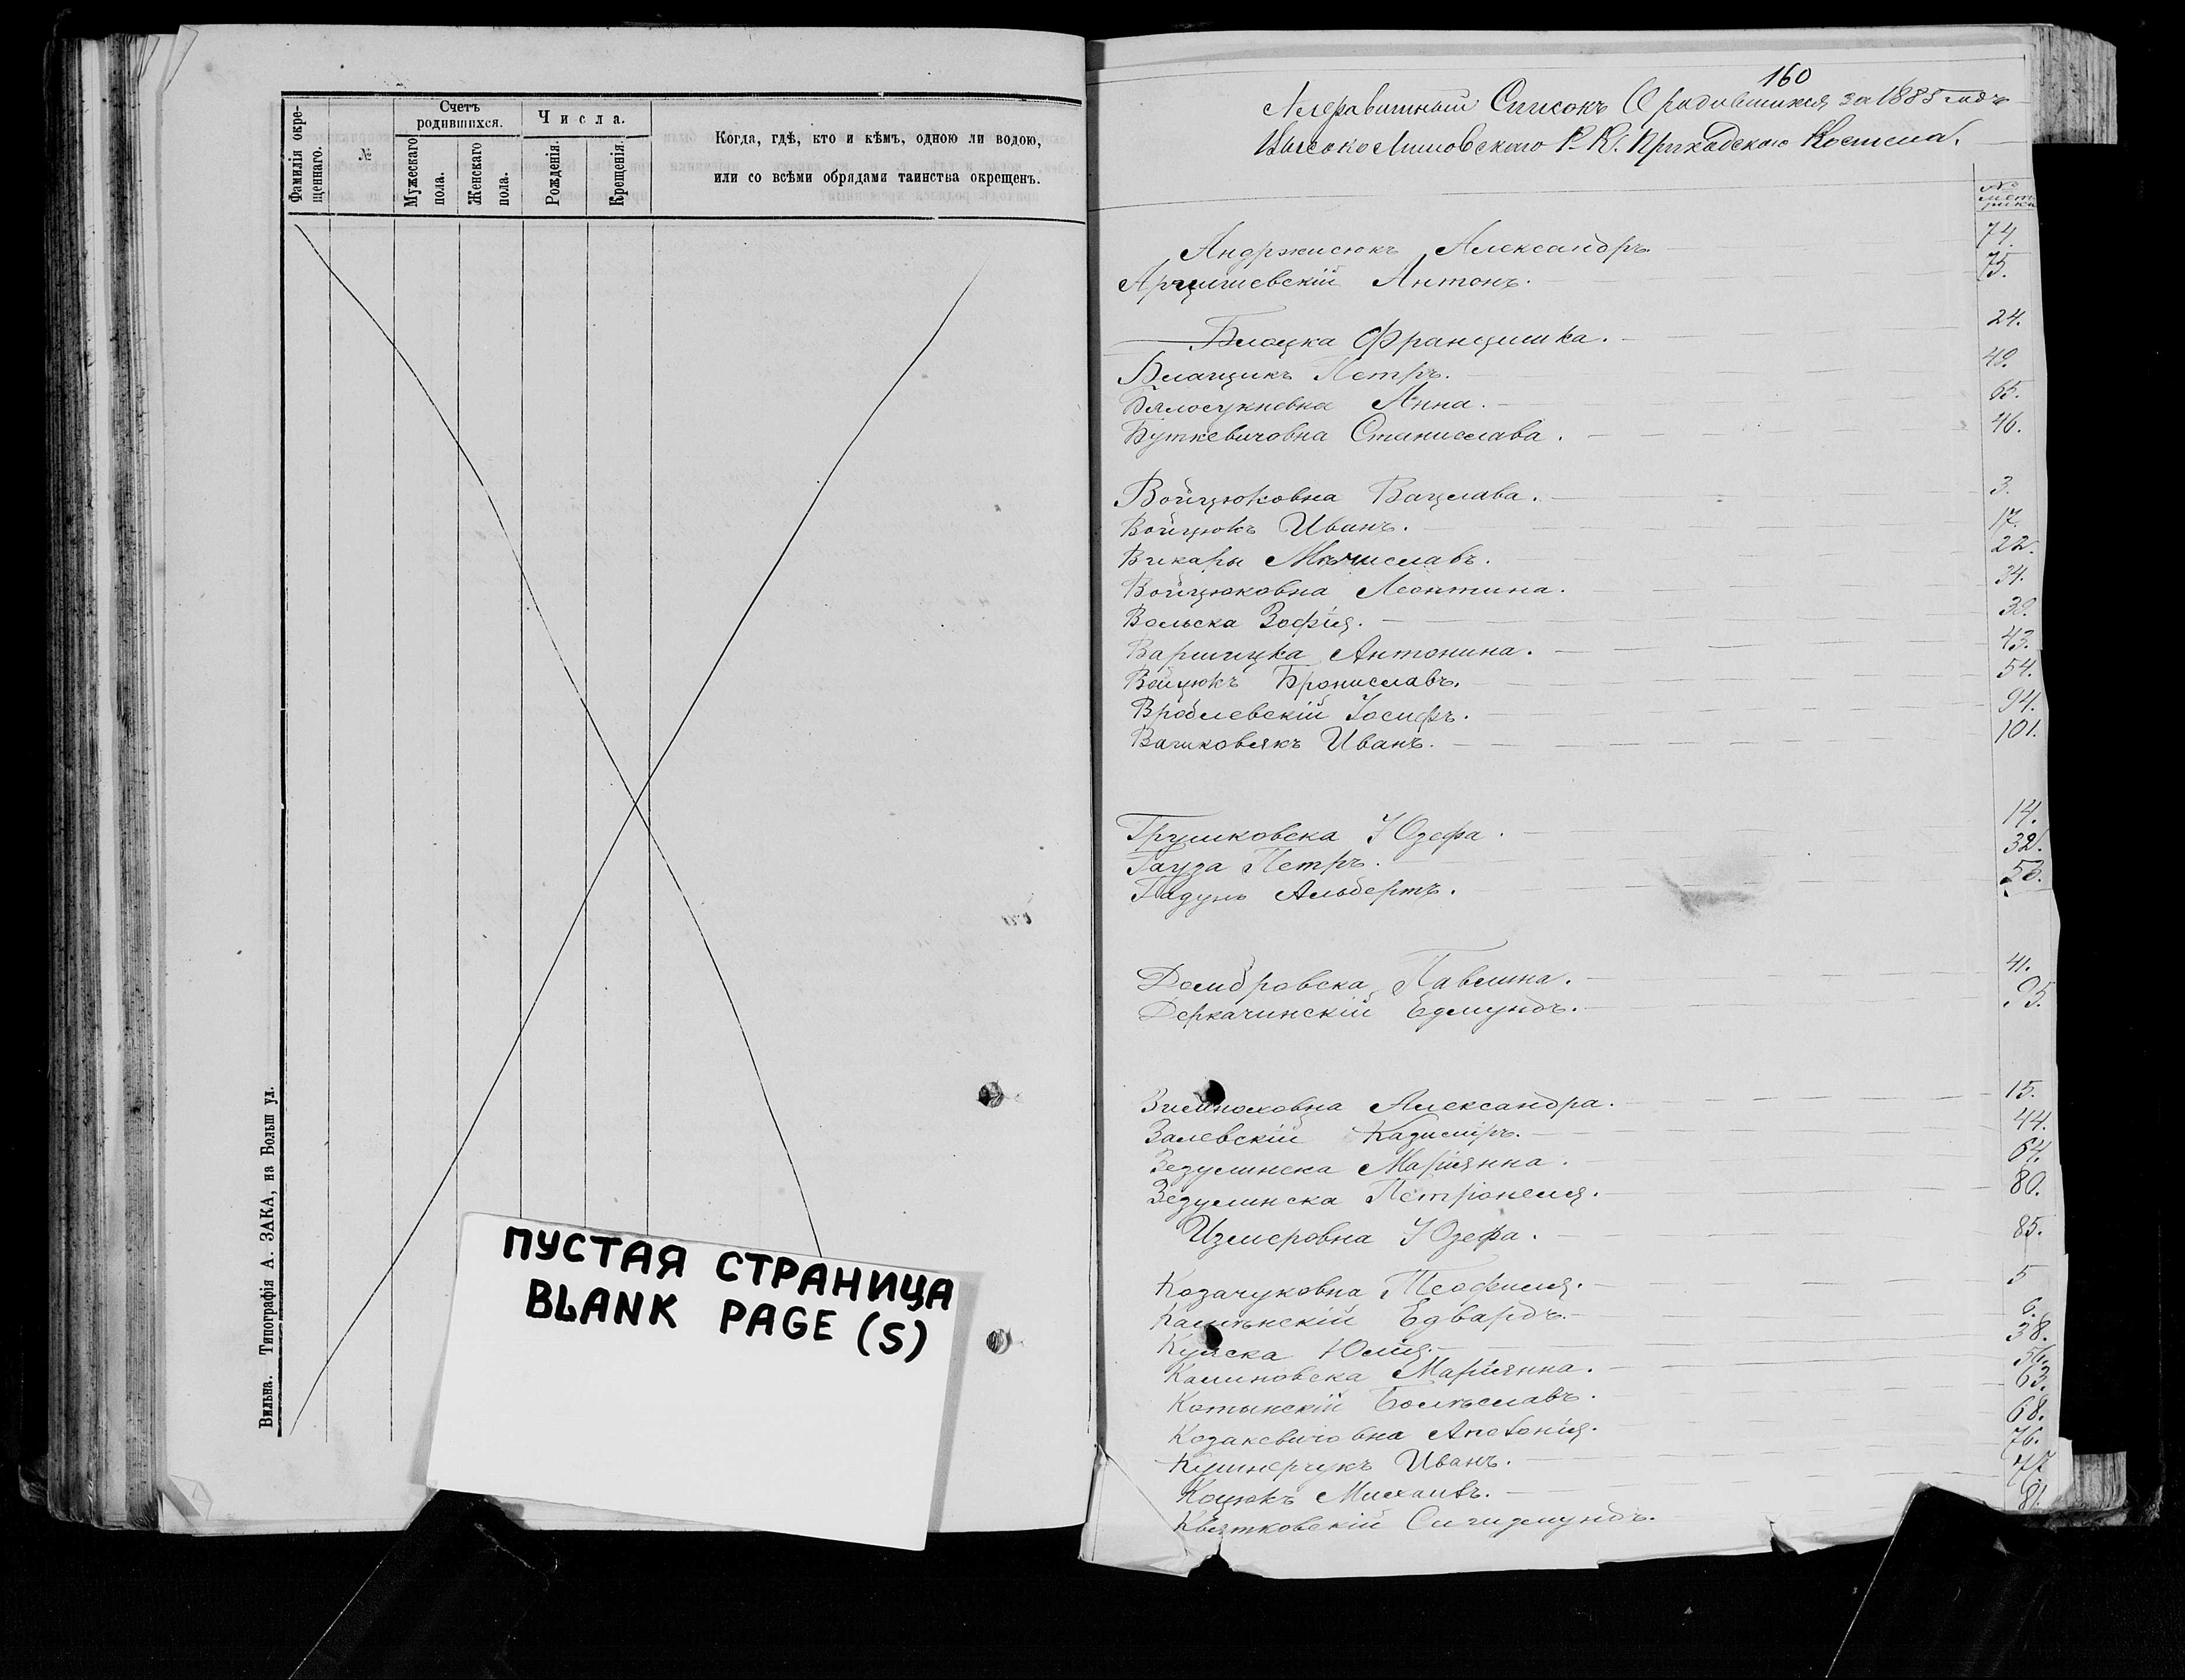 Фамилія окре-
щеннаго.
№
Счетъ
родившихся.
Мужескаго
пола.
Женскаго
пола.
Числа.
Рожденія.
Крещенія.
Когда, гдѣ, кто и кѣмъ, одною ли водою,
или со всѣми обрядами таинства окрещенъ.
Вильна. Типографія А. ЗАКА, на Больш ул.
ПУСТАЯ СТРАНИЦА
BLANK PAGE (S)
160
Алфавитный Списокъ О родившихся за 1885 годъ
Высоко Литовского Р. К. Приходскаго Костела.
№
метрики
Андржисюкъ Александръ 74.
Арцишевскій Антонъ. 75.
Францишка. 24.
Бланцикъ Петръ. 49.
Анна. 65.
Буткевичовна Станислава. 46.
Войцюковна Вацлава. 3.
Войцюкъ Иванъ. 17.
Викары Мѣчиславъ. 22.
Войцюковна Леонтина. 34.
Вольска Зофія. 39.
Варшицка Антонина. 43.
Войцюкъ Брониславъ. 54.
Вроблевскій Іосифъ. 94.
Вашковякъ Иванъ. 101.
Грушковска Юзефа. 14.
Гауза Петръ. 32.
Гадунъ Альбертъ. 53.
Домбровска Павлина. 41.
Деркачинскій Едмундъ. 95.
Александра. 15.
Залевскій Казиміръ. 44.
Зезулинска Маріянна. 64.
Зезулинска Петронеля. 80.
Измеровна Юзефа. 85.
Козачуковна Теофиля. 5
Каминскій Едвардъ. 6.
Юлія. 38.
Калиновска Маріянна. 56.
Котынскій Болеславъ. 63.
Козакевичовна Аполонія. 68.
Кушнерчукъ Иванъ. 76.
Коцюкъ Михаилъ. 77.
Квятковскій Сигизмундъ. 81.